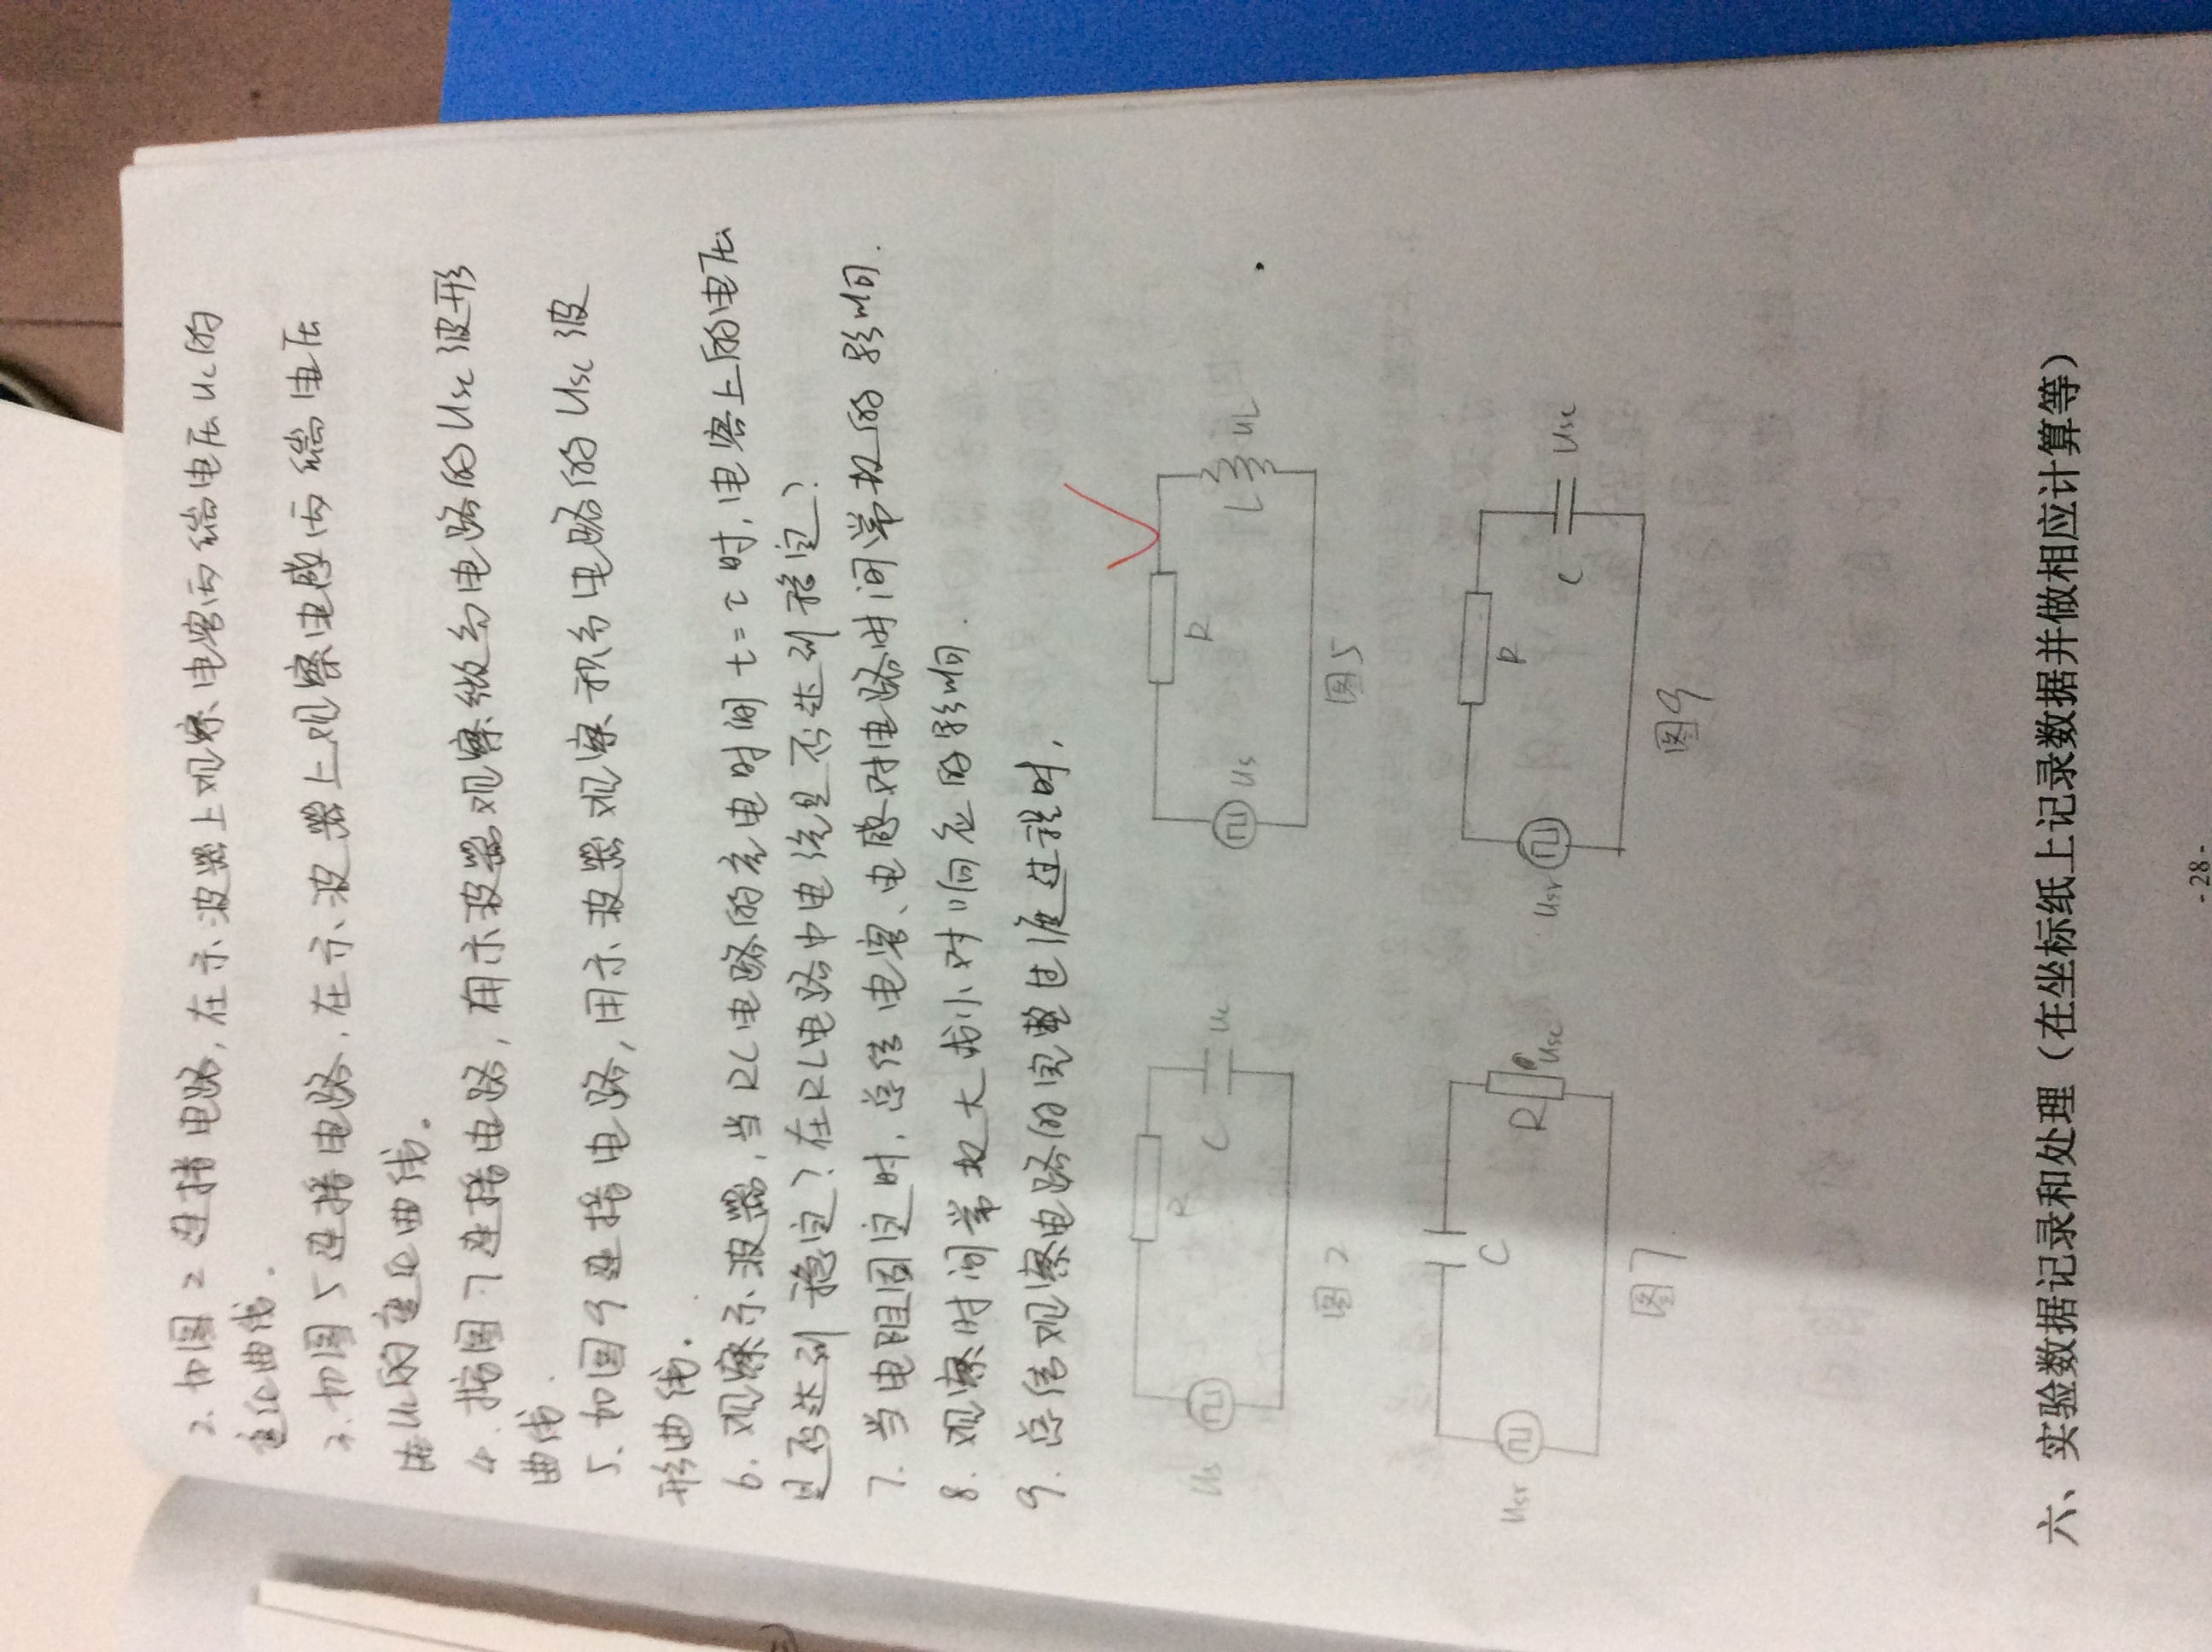 2. 如图2连接电路,在示波器上观察电容两端电压uc的
变化曲线.
3. 如图5连接电路.在示波器上观察电感两端电压
uL的变化曲线。
4. 按图7连接电路,用示波器观察微分电路的Usc波形
曲线.
5. 如图9连接电路,用示波器观察积分电路的Usc波
形曲线.
6. 观察示波器,当RC电路的充电时间t=τ时,电容上的电压
是否达到稳定?在RL电路中电流是否达到稳定?
7. 当电阻固定时,总结电容、电感对电路时间常数的影响.
8. 观察时间常数大或小对响应的影响.
9. 总结观察电路的完整过渡过程时,
Us R C uc
图2
Us R L uL
图5
Usr C R Usc
图7
Usr R C Usc
图9
六、实验数据记录和处理(在坐标纸上记录数据并做相应计算等)
- 28 -